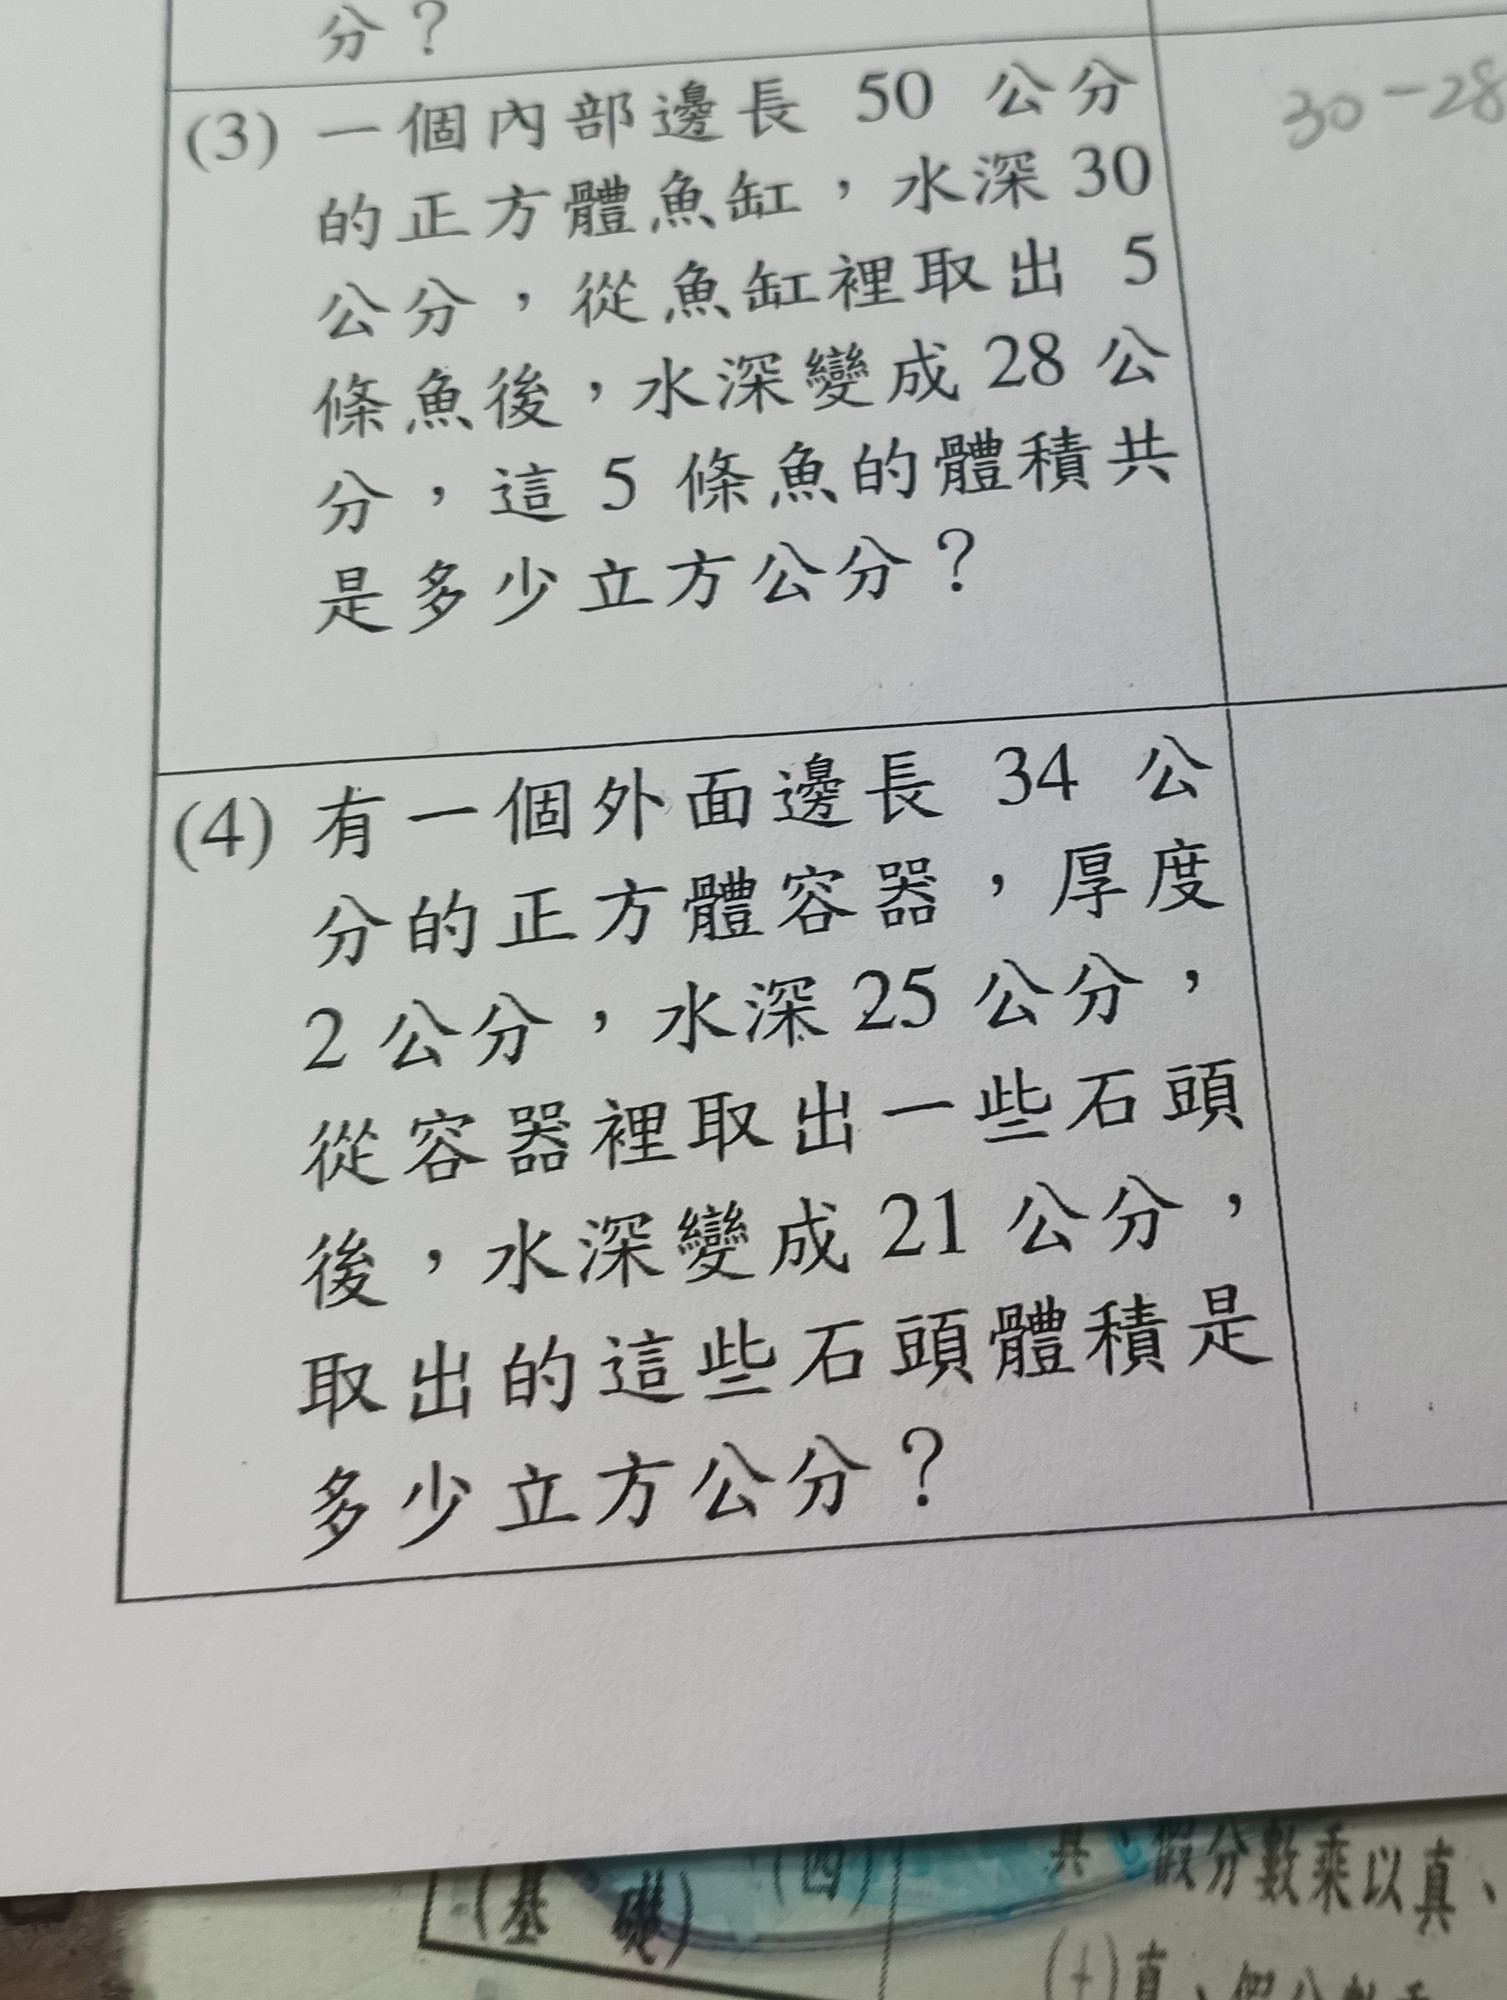 分？
(3) 一個內部邊長 50 公分
30-28
的正方體魚缸，水深 30
公分，從魚缸裡取出 5
條魚後，水深變成 28 公
分，這 5 條魚的體積共
是多少立方公分？
(4) 有一個外面邊長 34 公
分的正方體容器，厚度
2 公分，水深 25 公分，
從容器裡取出一些石頭
後，水深變成 21 公分，
取出的這些石頭體積是
多少立方公分？
(基 礎)
(四)
真、假分數乘以真、
(十)真、假分數